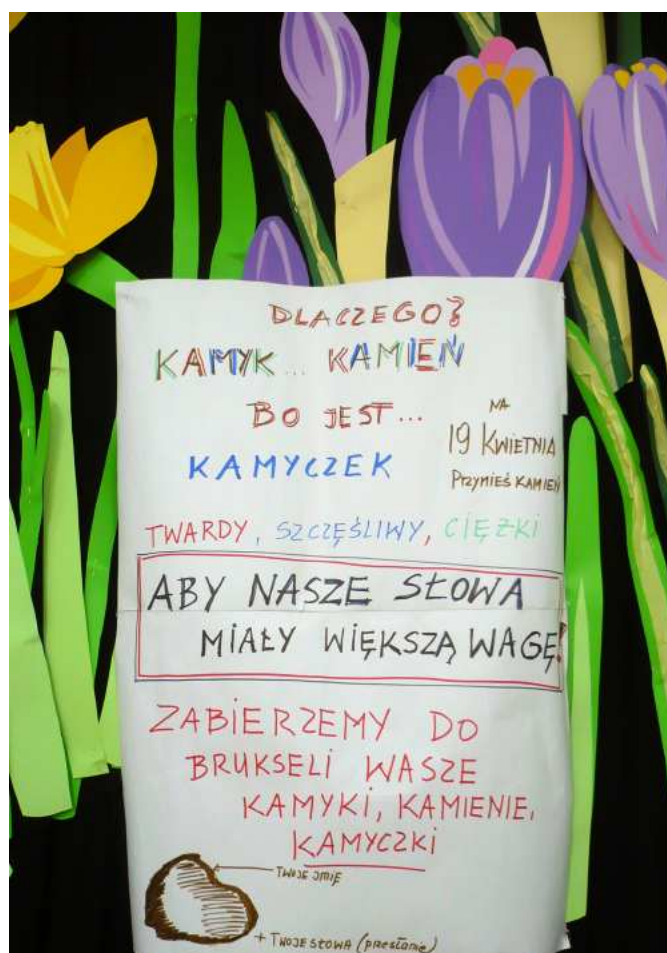 DLACZEGO?
KAMYK... KAMIEŃ
BO JEST...
KAMYCZEK
NA
19 KWIETNIA
PRZYNIEŚ KAMIEŃ
TWARDY, SZCZĘŚLIWY, CIĘŻKI
ABY NASZE SŁOWA
MIAŁY WIĘKSZĄ WAGĘ!
ZABIERZEMY DO
BRUKSELI WASZE
KAMYKI, KAMIENIE,
KAMYCZKI
TWOJE IMIĘ
+ TWOJE SŁOWA (przesłanie)